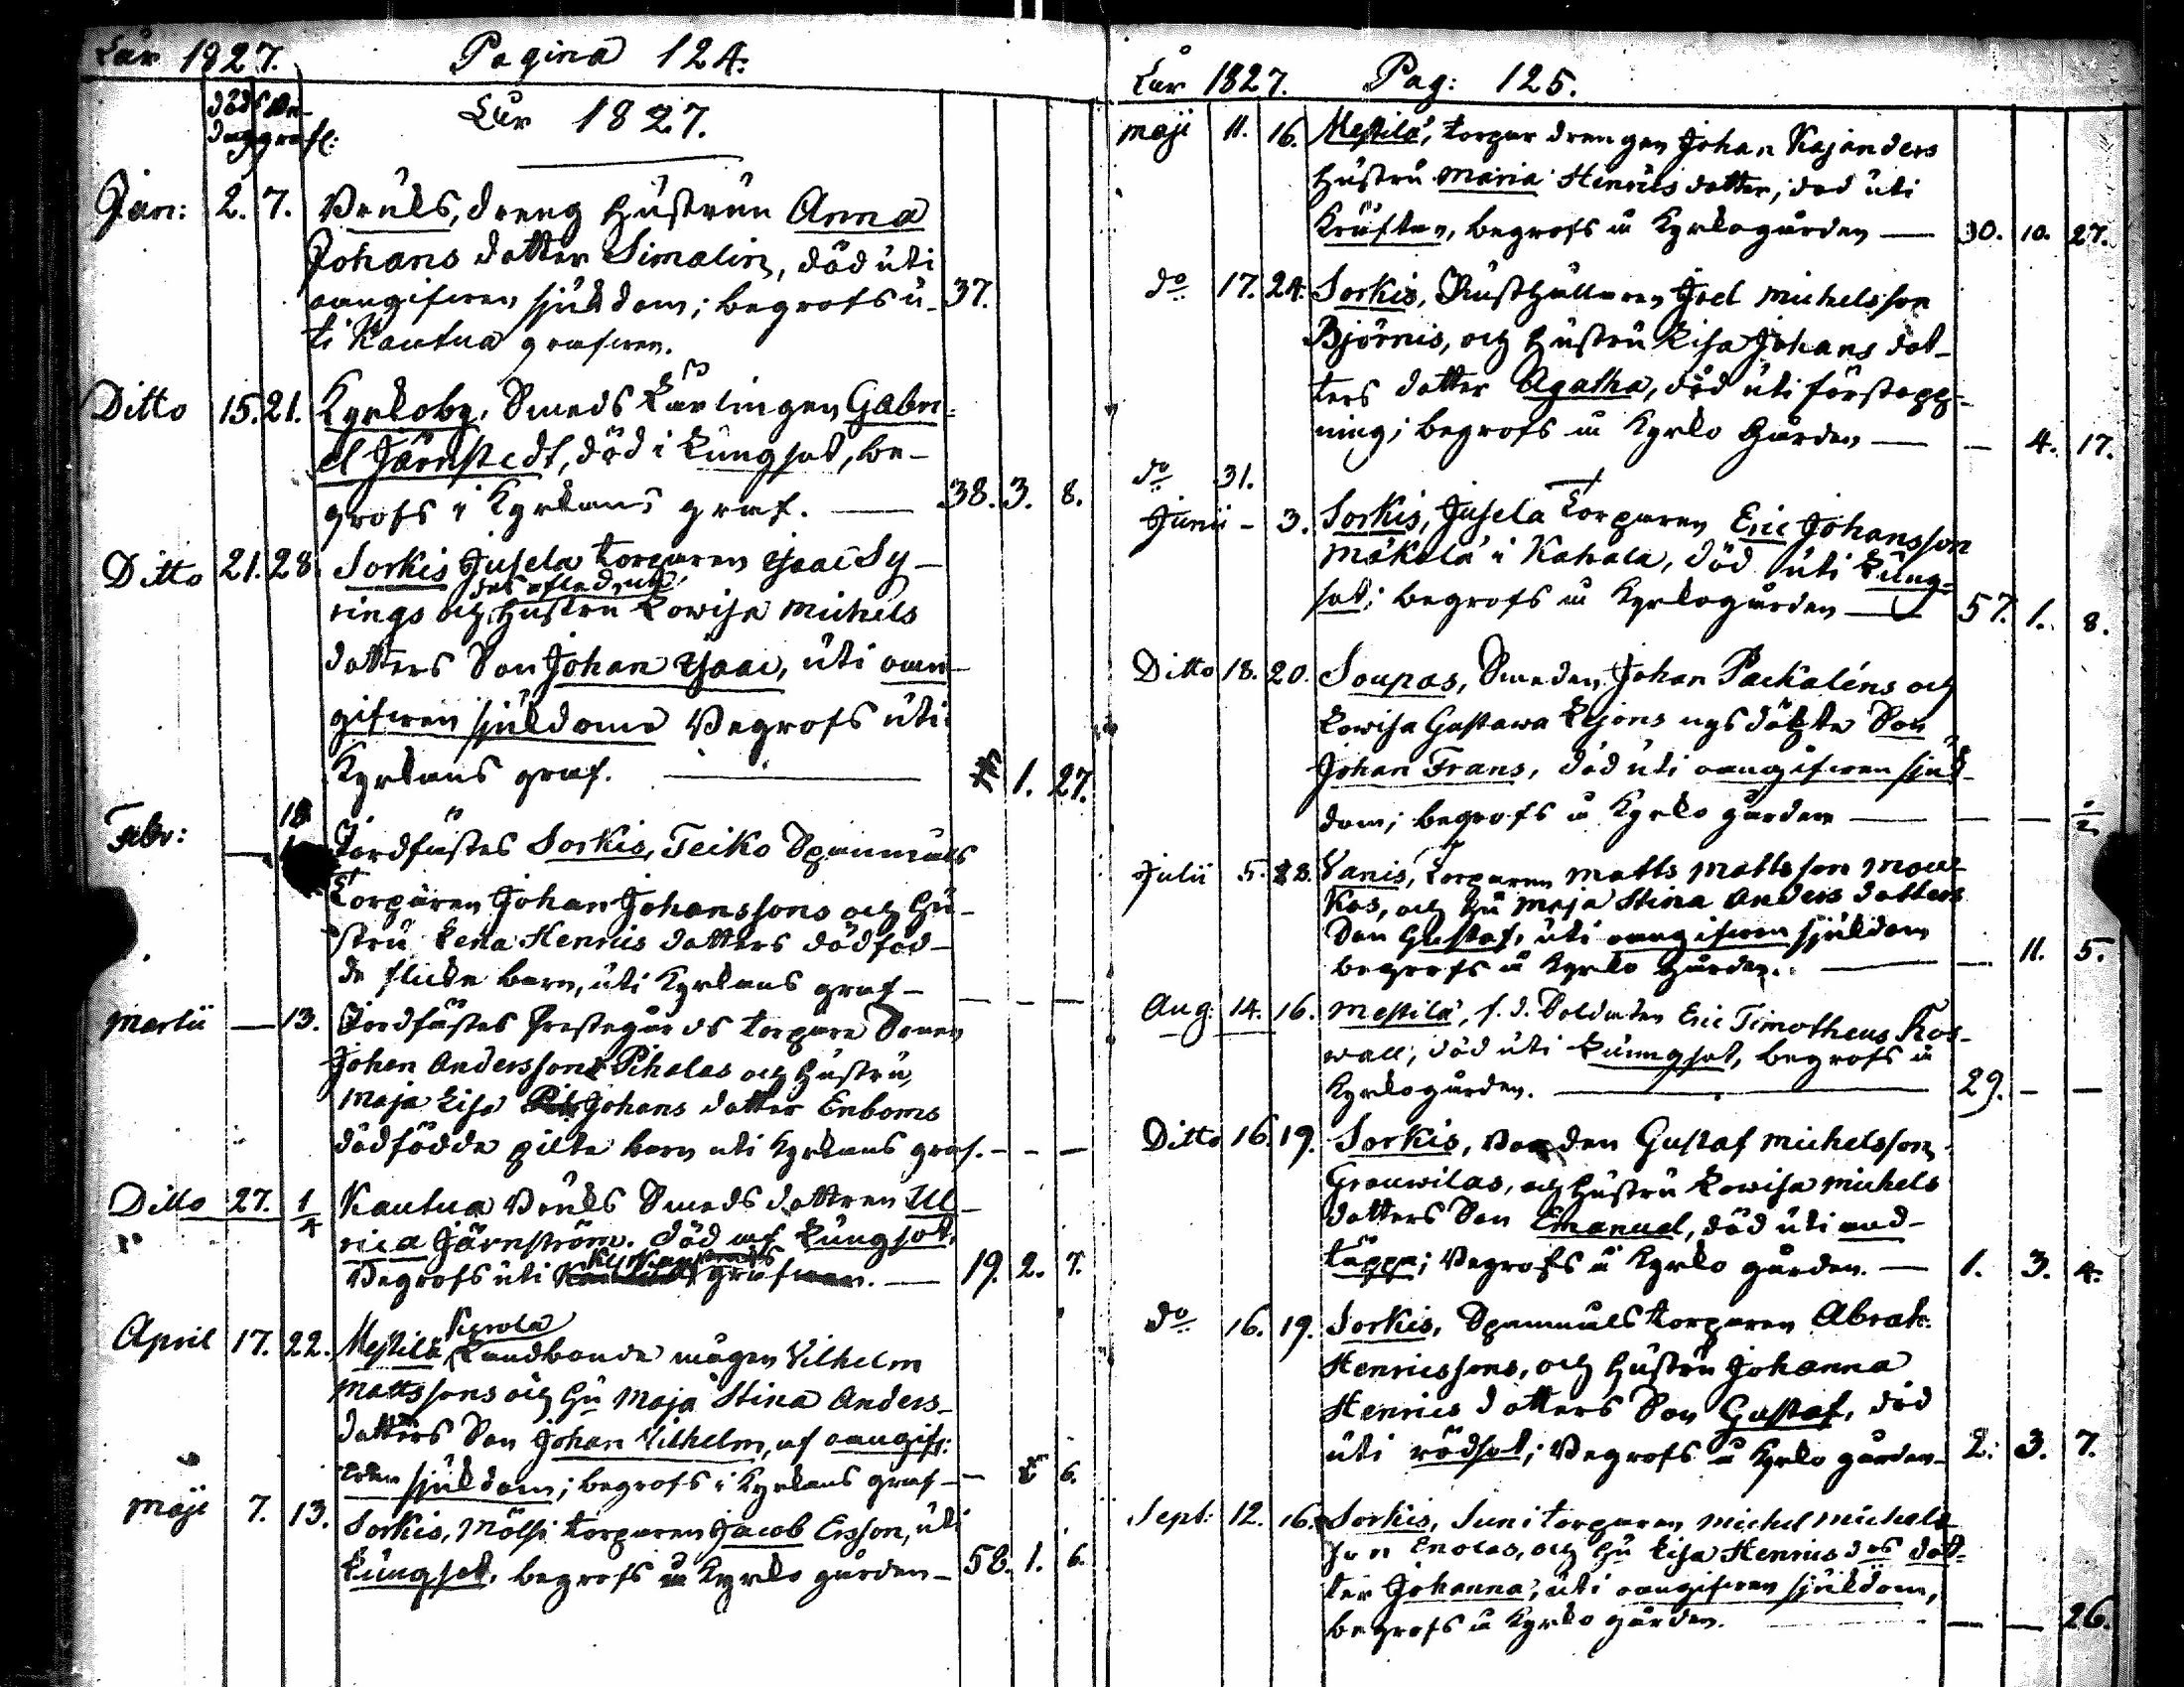 Åår 1827. Pagina 124.
död Be-
dag graf:
Åår 1827.
Jan: 2. 7. Bruks, dreng Hustrun Anna
Johans dotter Simalin, död uti
oangifwen sjukdom; begrofs u- 37.
ti Kautua grafwen.
Ditto 15. 21. Kyrkoby, Smeds Lärlingen Gabri-
el Järnstedt, död i Lungsot, be-
grofs i Kyrkans graf. — 38. 3. 8.
Ditto 21. 28. Sorkis Jusela torparen Isaac Sy-
des efled:
rings och Hustru Lowisa Michels
dotters Son Johan Isaac, uti oan-
gifwen sjukdom Begrofs uti
Kyrkans graf. — 1. 27.
Febr: — 18 Jordfästes Sorkis, Teiko Spanmåls
Torparen Johan Johanssons och Hu-
stru Lena Henrics dotters dödföd-
da flicke barn, uti Kyrkans graf — — — —
Martii — 13. Jordfästes Prestegårds torpare Sonen
Johan Anderssons Pihalas och Hustru,
Maja Lisa Johans dotter Enboms
dödfödda pilte barn uti Kyrkans graf. — — —
Ditto 27. 1/4 Kautua Bruks Smeds dottren Ul-
rica Järnström. död af Lungsot.
Begrofs uti Kyrkans graf. — 19. 2. 7.
Kyrola
April 17. 22. Mestilä Landbonde mågen Vilhelm
Mattssons och Hu Maja Stina Anders-
dotters Son Johan Vilhelm, af oangif-
wen sjukdom; begrofs i Kyrkans graf — — 5 6.
Maji 7. 13. Sorkis, Mölsi torparen Jacob Ersson, uti
Lungsot, begrofs å Kyrko gården — 58. 1. 6.
Åår 1827. Pag: 125.
Maji 11. 16. Mestilä, torpar drengen Johan Kajanders
Hustru Maria Henrics dotter; död uti
Kräftan, begrofs å Kyrkogården — 30. 10. 27.
do 17. 24. Sorkis, Rusthållaren Joel Michelsson
Björnis, och Hustru Lisa Johans dot-
ters dotter Agatha, död uti förstopp-
ning; begrofs å Kyrko Gården — — 4. 17.
do 31.
Junii - 3. Sorkis, Jusela Torparen Eric Johansson
Mäkelä i Kahala, död uti Lung-
sot; begrofs å Kyrkogården — 57. 1. 8.
Ditto 18. 20. Soupas, Smeden Johan Packaléns och
Lowisa Gustawa Lejons nys döpte Son
Johan Frans, död uti oangifwen sjuk-
dom; begrofs å Kyrko gården — — — 1/2
Julii 5. 8. Vanis, Torparen Matts Mattsson Mou-
kos, och Hu Maja Stina Anders dotters
Son Gustaf, uti oangifwen sjukdom
begrofs å Kyrko Gården. — — 11. 5.
Aug: 14. 16. Mestilä, f.d. Soldaten Eric Timotheus Ros-
wall, död uti Lungsot, begrofs å
Kyrkogården. — 29. — —
Ditto 16. 19. Sorkis, Bonden Gustaf Michelsson
Grouwilas, och Hustru Lowisa Michels
dotters Son Emanuel, död uti and-
täppa; Begrofs å Kyrko gården. — 1. 3. 4.
do 16. 19. Sorkis, Spanmåls torparen Abrah:
Henricssons, och Hustru Johanna
Henrics dotters Son Gustaf, död
uti rödsot; Begrofs å Kyrko gården — 2. 3. 7.
Sept: 12. 16. Sorkis, Juni torparen Michel Michels-
son Enolas, och Hu Lisa Henrics dos dot-
ter Johanna, uti oangifwen sjukdom,
begrofs å Kyrko gården. — — 26.